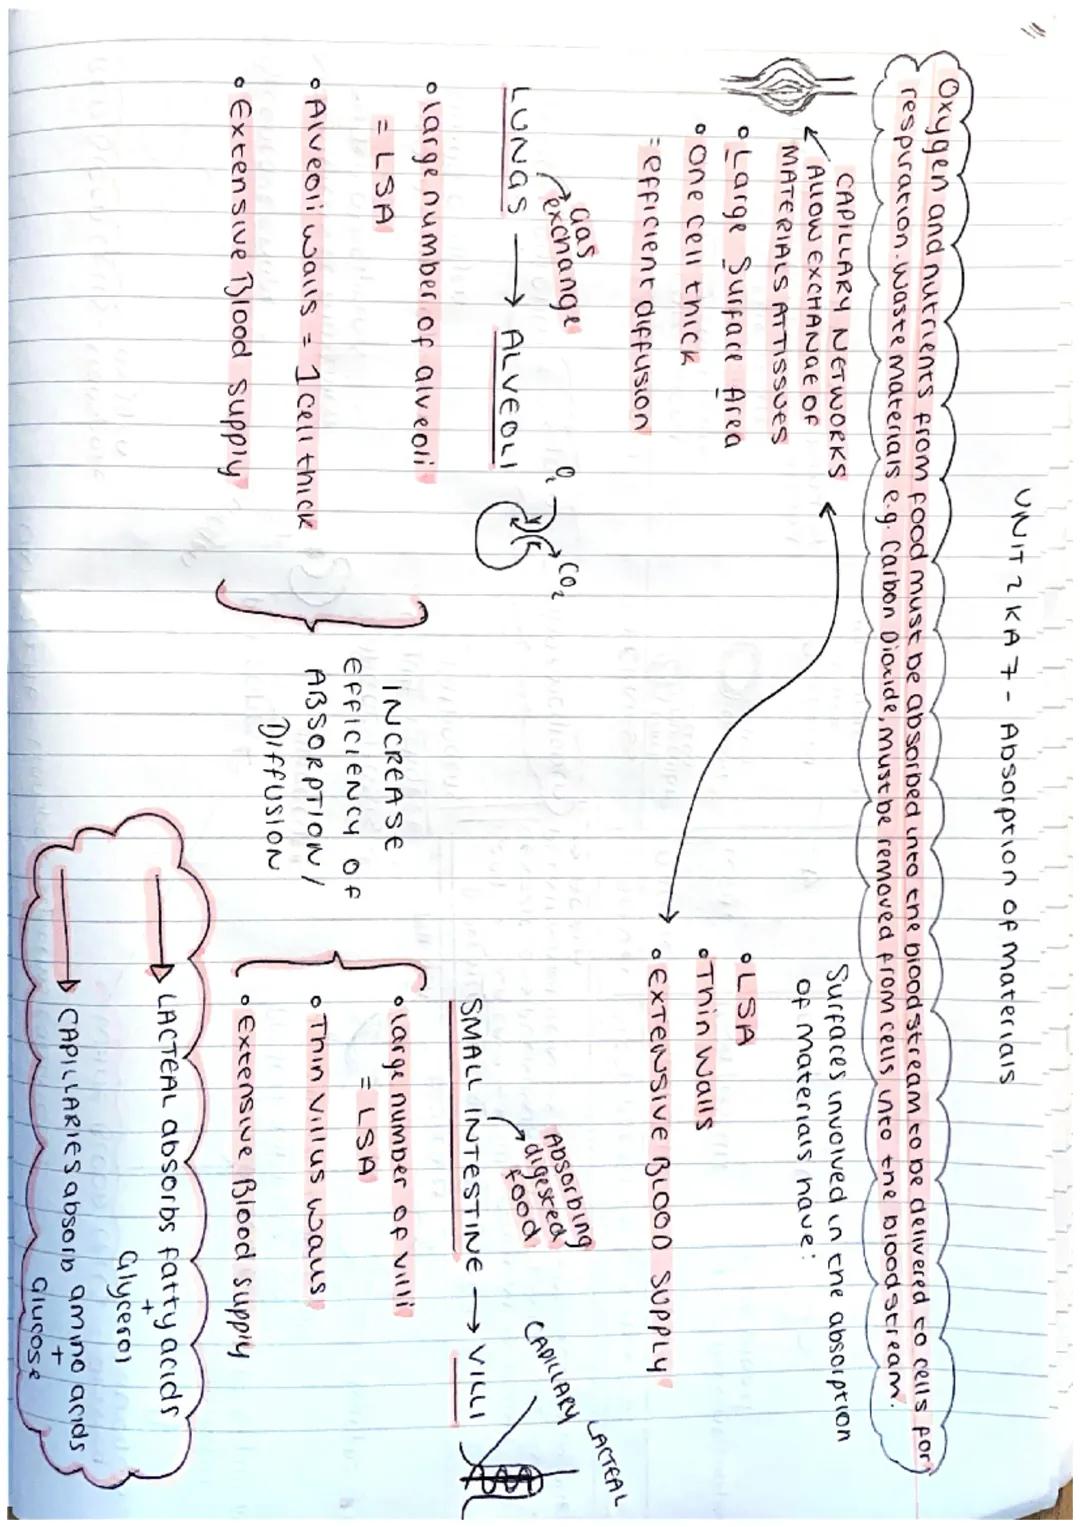 UNIT 2 KA7 - Absorption of Materials
Oxygen and nutrients from food must be absorbed into the bloodstream to be delivered to cells for
respiration. Waste materials e.g. Carbon Dioxide, must be removed from cells into the bloodstream.
CAPILLARY NETWORKS
ALLOW EXCHANGE OF
MATERIALS AT TISSUES
• Large Surface Area
• One cell thick
= efficient diffusion
Surfaces involved in the absorption
of materials have:
• LSA
• Thin walls
• EXTENSIVE BLOOD SUPPLY
Gas
exchange
LUNGS → ALVEOLI
O₂
CO₂
• large number of alveoli
= LSA
• Alveoli walls = 1 cell thick
• Extensive Blood supply
INCREASE
EFFICIENCY OF
ABSORPTION /
DIFFUSION
Absorbing
digested
food
SMALL INTESTINE → VILLI
CAPILLARY
LACTEAL
• large number of villi
= LSA
• Thin villus walls
• Extensive Blood supply
→ LACTEAL absorbs fatty acids
+
Glycerol
→ CAPILLARIES absorb amino acids
+
Glucose